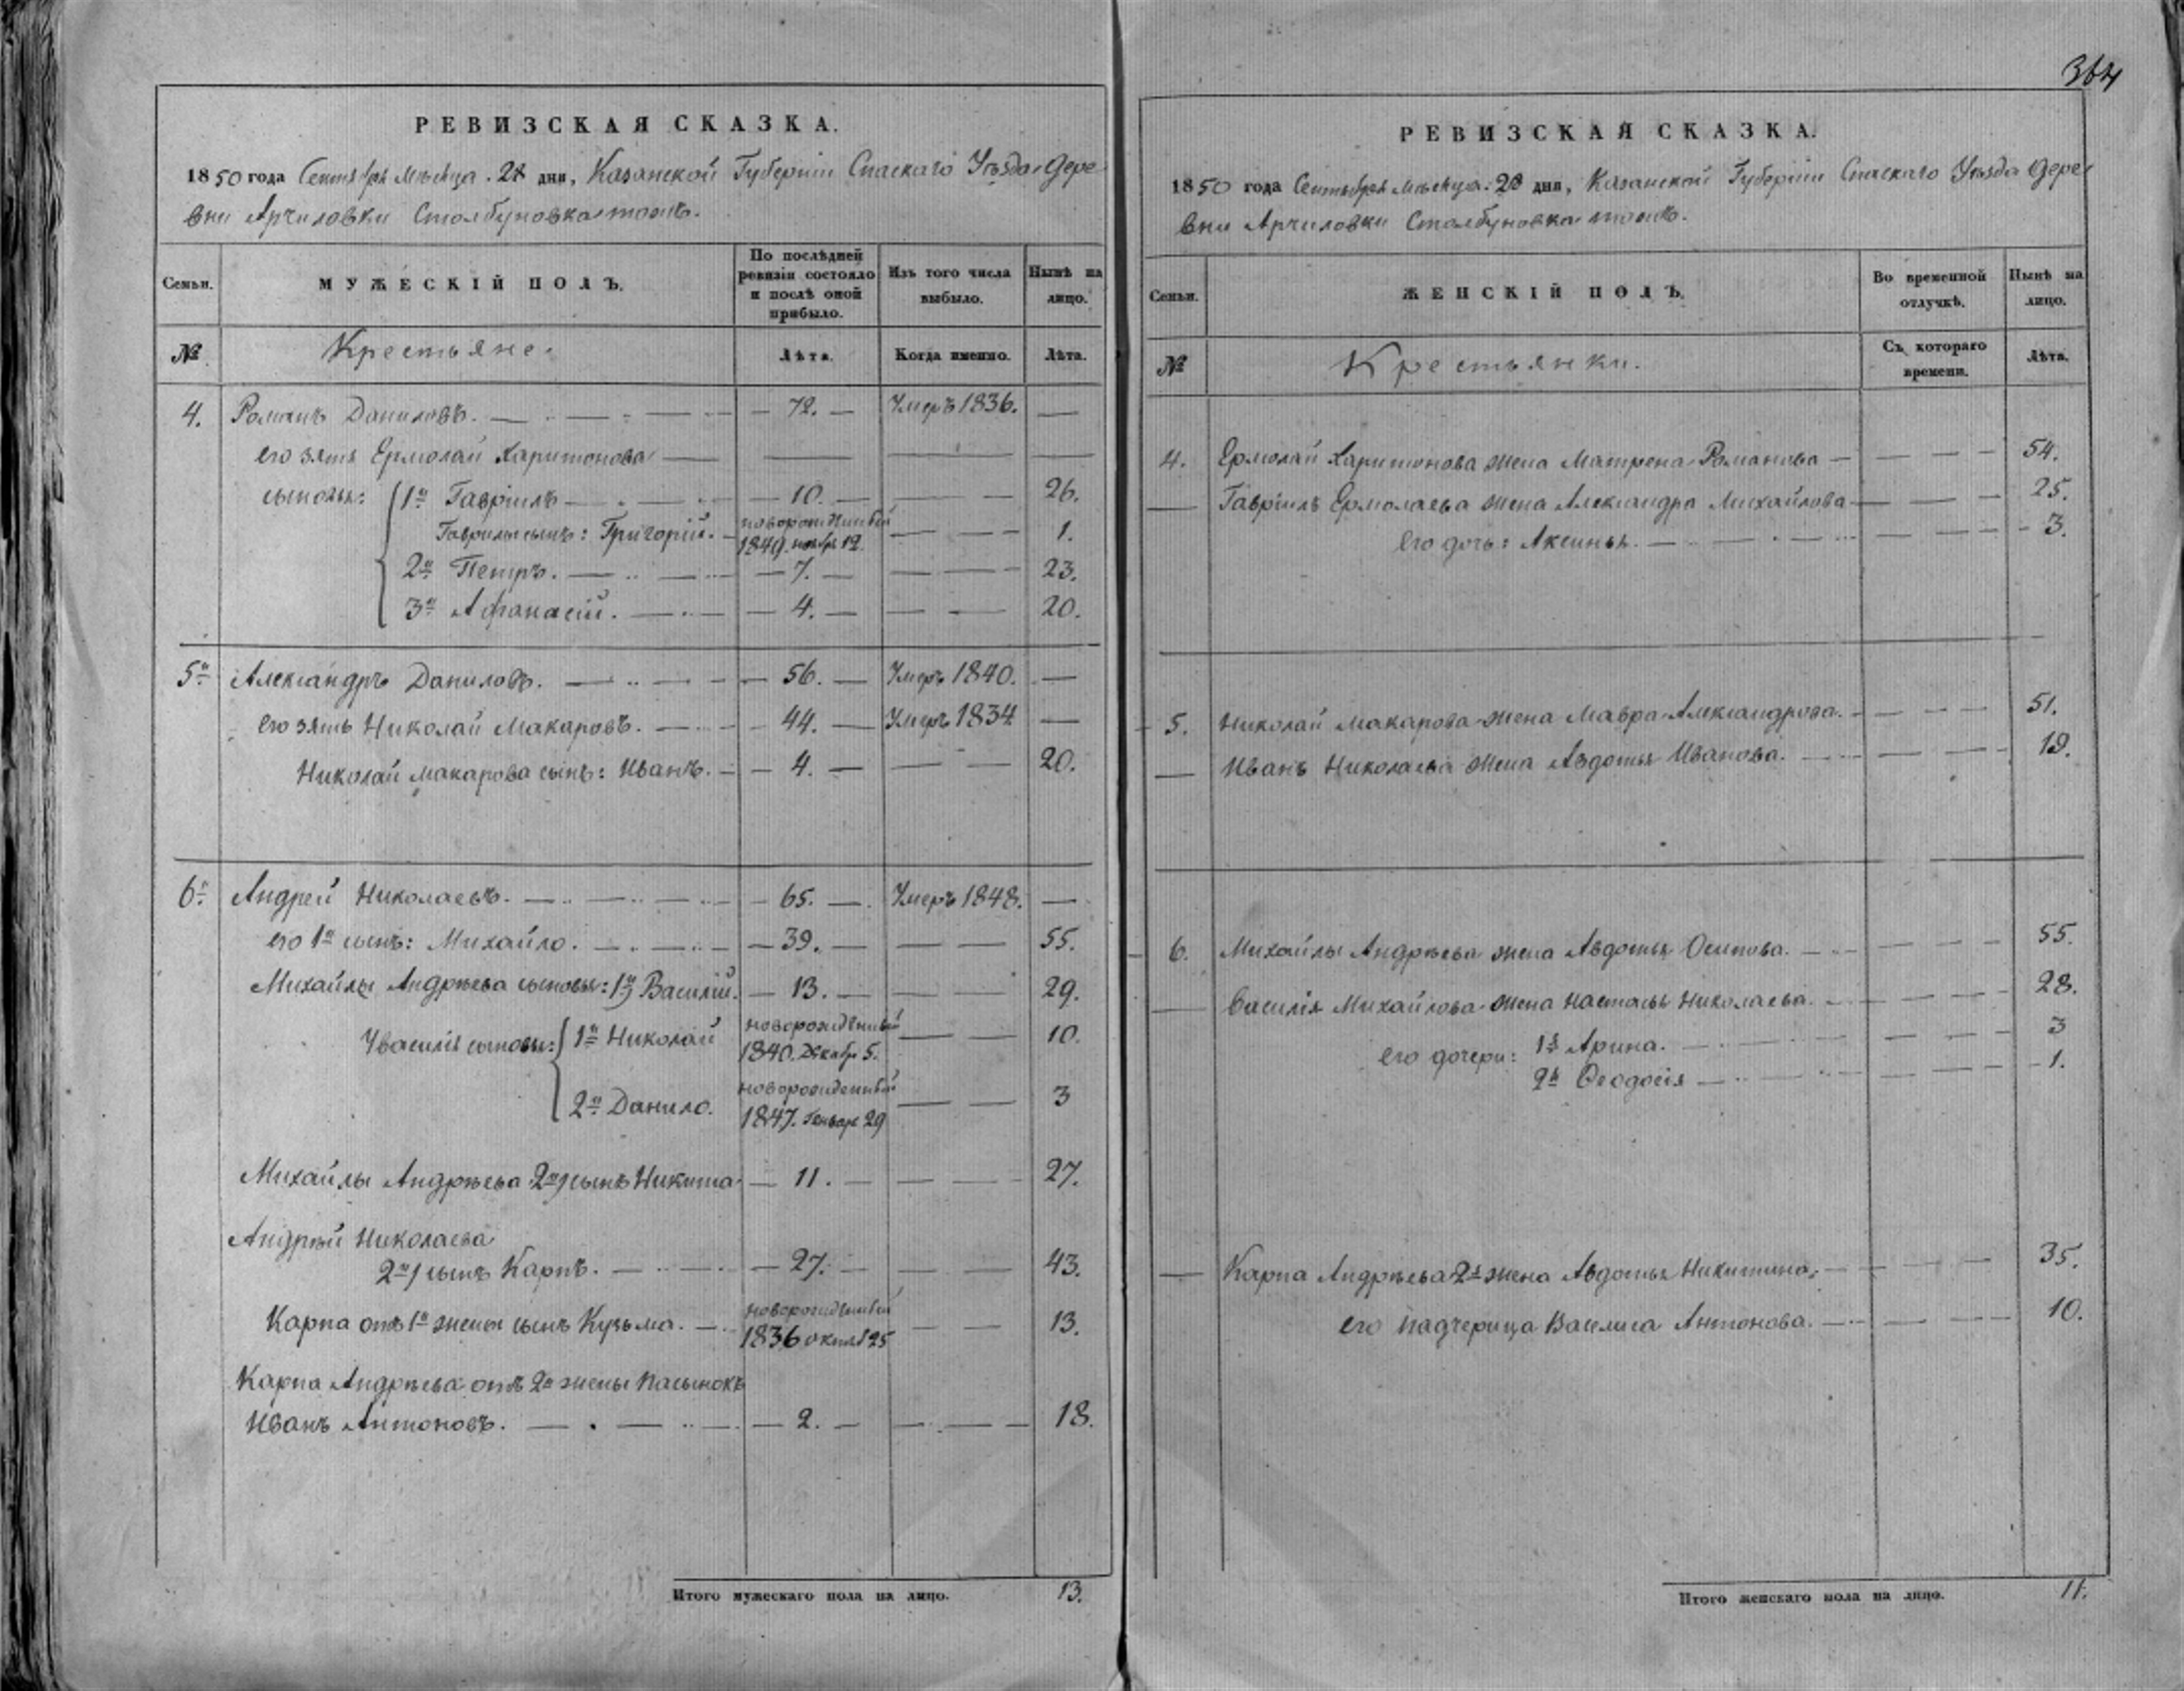 364
РЕВИЗСКАЯ СКАЗКА.
1850 года Сентября Мѣсяца 28 дня, Казанской Губерніи Спаскаго Уѣзда Дере-
вни Арчиловки Столбуновка тожъ.
Семьи.
МУЖЕСКІЙ ПОЛЪ.
По послѣдней ревизіи состояло и послѣ оной прибыло.
Изъ того числа выбыло.
Нынѣ на лицо.
№
Крестьяне.
Лѣта.
Когда именно.
Лѣта.
4. Романъ Даниловъ. — 72. — Умеръ 1836. —
его зятя Ермолай Харитонова — — — —
сыновья: 1й Гавріилъ — 10. — — 26.
Гаврилы сынъ: Григорій. — новорожденный 1849. ноябр 12. — 1.
2й Петръ. — 7. — — 23.
3й Афанасій. — 4. — — 20.
5й Александръ Даниловъ. — 56. — Умеръ 1840. —
его зять Николай Макаровъ. — 44. — Умеръ 1834 —
Николай Макарова сынъ: Иванъ. — 4. — — 20.
6й Андрей Николаевъ. — 65. — Умеръ 1848. —
его 1й сынъ: Михайло. — 39. — — 55.
Михайлы Андрѣева сыновья: 1й Василій. — 13. — — 29.
У василія сыновья: 1й Николай новорожденный 1840. Декабр 5. — 10.
2й Данило. новорожденный 1847. Генваря 29 — 3
Михайлы Андрѣева 2й сынъ Никита — 11. — — 27.
Андрѣй Николаева
2й сынъ Карпъ. — 27. — — 43.
Карпа отъ 1й жены сынъ Кузьма. — новорожденный 1836 октяб 25 — 13.
Карпа Андрѣева отъ 2й жены пасынокъ
Иванъ Антоновъ. — 2. — — 18.
Итого мужескаго пола на лицо. 13.
РЕВИЗСКАЯ СКАЗКА.
1850 года Сентября мѣсяца 28 дня, Казанской Губерніи Спаскаго Уѣзда Дере-
вни Арчиловки Столбуновка тожъ.
Семьи.
ЖЕНСКІЙ ПОЛЪ.
Во временной отлучкѣ.
Нынѣ на лицо.
№
Крестьянки.
Съ котораго времени.
Лѣта.
4. Ермолай Харитонова жена Матрена Романова — — 54.
— Гавріилъ Ермолаева жена Александра Михайлова — — 25.
Его дочь: Аксинья. — — 3.
5. Николай Макарова жена Мавра Александрова. — — 51.
— Иванъ Николаева жена Авдотья Иванова. — — 19.
6. Михайлы Андрѣева жена Авдотья Осипова. — — 55.
— Василія Михайлова жена Настасья Николаева. — — 28.
его дочери: 1я Арина. — — 3
2я Ѳеодосія — — 1.
— Карпа Андрѣева 2я жена Авдотья Никитина; — — 35.
его падчерица Василиса Антонова. — — 10.
Итого женскаго пола на лицо. 11.